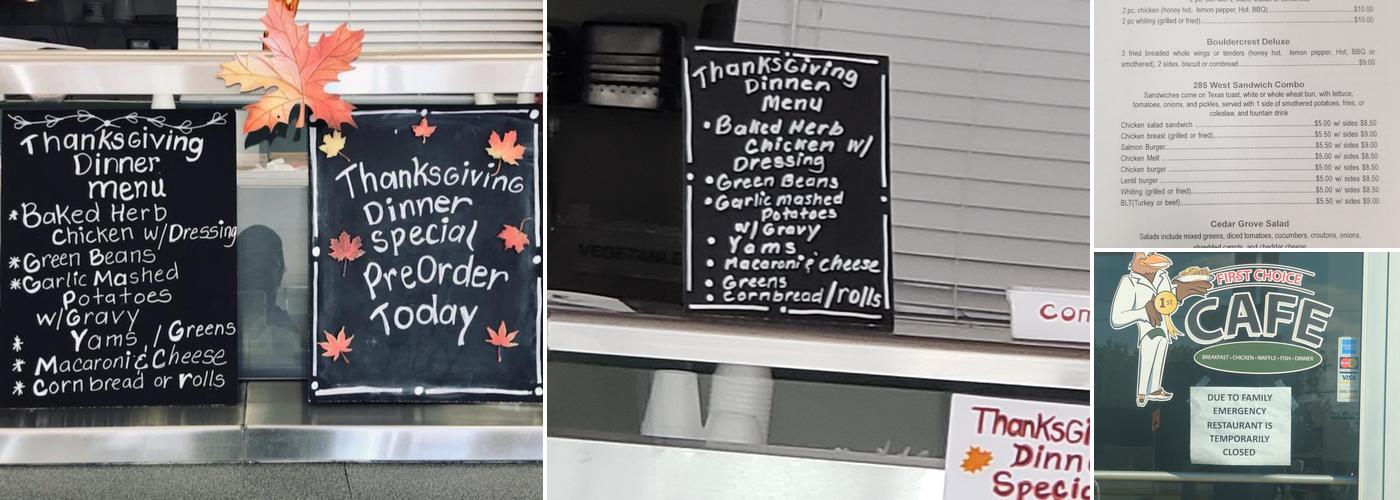 ThanksGiving
Dinner
menu
*Baked Herb
Chicken w/Dressing
*Green Beans
*Garlic Mashed
Potatoes
w/Gravy
* Yams / Greens
* Macaroni & Cheese
* Cornbread or rolls
ThanksGiving
Dinner
special
PreOrder
Today
ThanksGiving
Dinner
Menu
•Baked Herb
Chicken w/
Dressing
•Green Beans
•Garlic mashed
Potatoes
w/Gravy
• Yams
• Macaroni & cheese
• Greens
• Cornbread/rolls
VEGETABLE
Com
ThanksGi
Dinn
Specia
2 pc. chicken (honey hot, lemon pepper, Hot, BBQ)...$10.00
2 pc whiting (grilled or fried)...$10.00
Bouldercrest Deluxe
3 fried breaded whole wings or tenders (honey hot, lemon pepper, Hot, BBQ or
smothered), 2 sides, biscuit or cornbread...$9.00
285 West Sandwich Combo
Sandwiches come on Texas toast, white or whole wheat bun, with lettuce,
tomatoes, onions, and pickles, served with 1 side of smothered potatoes, fries, or
coleslaw, and fountain drink
Chicken salad sandwich ...$5.00 w/ sides $8.50
Chicken breast (grilled or fried)...$5.50 w/ sides $9.00
Salmon Burger...$5.50 w/ sides $9.00
Chicken Melt ...$5.00 w/ sides $8.50
Chicken burger ...$5.00 w/ sides $8.50
Lentil burger ...$5.00 w/ sides $8.50
Whiting (grilled or fried)...$5.00 w/ sides $8.50
BLT(Turkey or beef)...$5.50 w/ sides $9.00
Cedar Grove Salad
Salads include mixed greens, diced tomatoes, cucumbers, croutons, onions,
shredded carrots, and cheddar cheese
FIRST CHOICE
1st
CAFE
BREAKFAST • CHICKEN • WAFFLE • FISH • DINNER
VISA
DUE TO FAMILY
EMERGENCY
RESTAURANT IS
TEMPORARILY
CLOSED